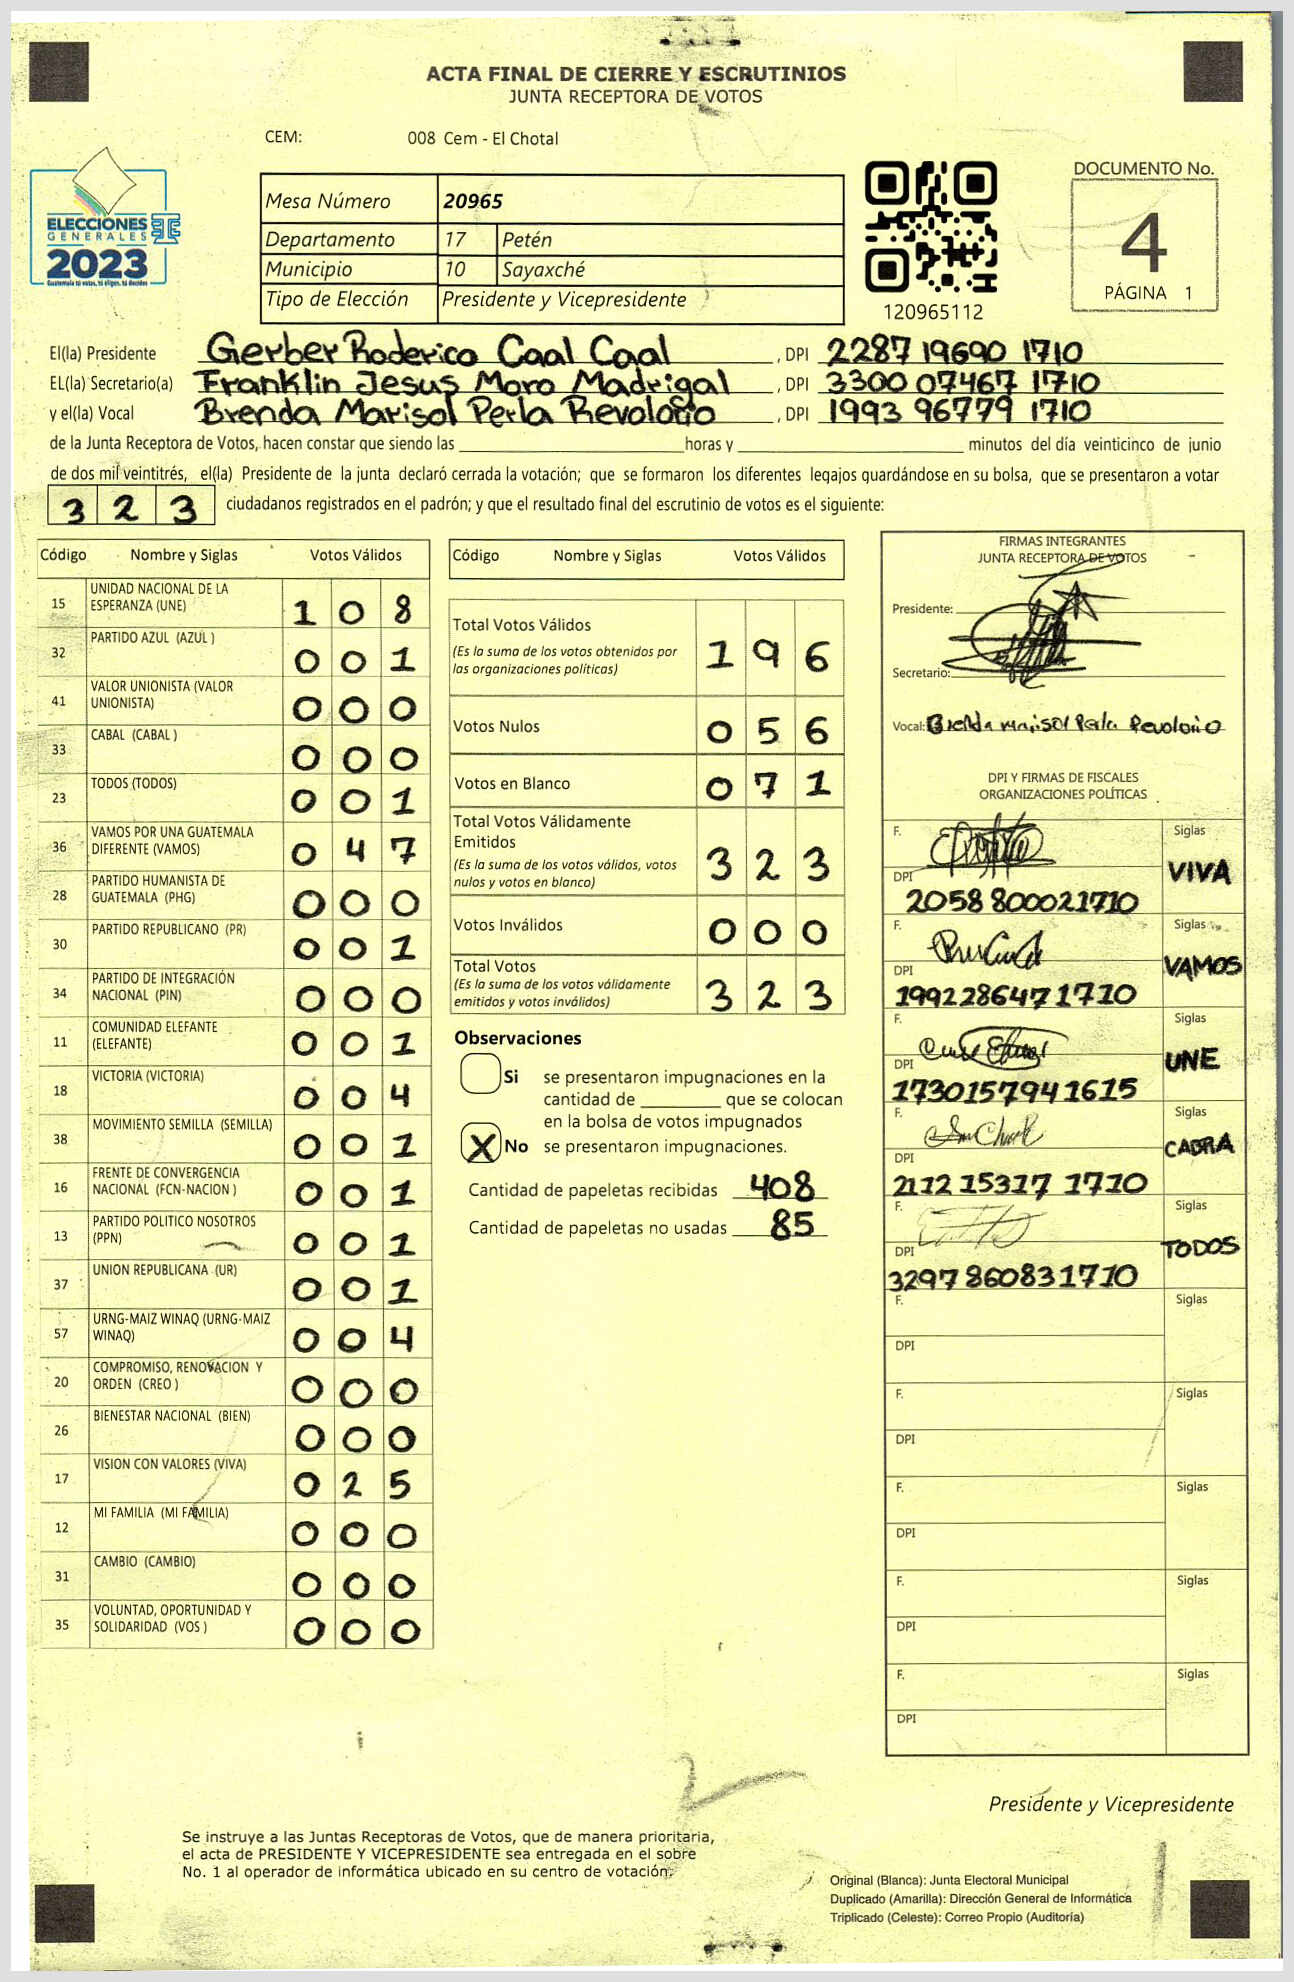 ACTA FINAL DE CIERRE Y ESCRUTINIOS
JUNTA RECEPTORA DE VOTOS
CEM: 008 Cem - El Chotal
DOCUMENTO No.
4
PÁGINA 1
ELECCIONES
GENERALES
2023
Guatemala tú votas, tú eliges, tú decides
Mesa Número 20965
Departamento 17 Petén
Municipio 10 Sayaxché
Tipo de Elección Presidente y Vicepresidente
120965112
El(la) Presidente Gerber Roderico Caal Caal , DPI 2287 19690 1710
EL(la) Secretario(a) Franklin Jesus Moro Madrigal , DPI 3300 07467 1710
y el(la) Vocal Brenda Marisol Perla Revolorio , DPI 1993 96779 1710
de la Junta Receptora de Votos, hacen constar que siendo las horas y minutos del día veinticinco de junio
de dos mil veintitrés, el(la) Presidente de la junta declaró cerrada la votación; que se formaron los diferentes legajos guardándose en su bolsa, que se presentaron a votar
323 ciudadanos registrados en el padrón; y que el resultado final del escrutinio de votos es el siguiente:
Código Nombre y Siglas Votos Válidos
15 UNIDAD NACIONAL DE LA ESPERANZA (UNE) 1 0 8
32 PARTIDO AZUL (AZUL ) 0 0 1
41 VALOR UNIONISTA (VALOR UNIONISTA) 0 0 0
33 CABAL (CABAL ) 0 0 0
23 TODOS (TODOS) 0 0 1
36 VAMOS POR UNA GUATEMALA DIFERENTE (VAMOS) 0 4 7
28 PARTIDO HUMANISTA DE GUATEMALA (PHG) 0 0 0
30 PARTIDO REPUBLICANO (PR) 0 0 1
34 PARTIDO DE INTEGRACIÓN NACIONAL (PIN) 0 0 0
11 COMUNIDAD ELEFANTE (ELEFANTE) 0 0 1
18 VICTORIA (VICTORIA) 0 0 4
38 MOVIMIENTO SEMILLA (SEMILLA) 0 0 1
16 FRENTE DE CONVERGENCIA NACIONAL (FCN-NACION ) 0 0 1
13 PARTIDO POLITICO NOSOTROS (PPN) 0 0 1
37 UNION REPUBLICANA (UR) 0 0 1
57 URNG-MAIZ WINAQ (URNG-MAIZ WINAQ) 0 0 4
20 COMPROMISO, RENOVACION Y ORDEN (CREO ) 0 0 0
26 BIENESTAR NACIONAL (BIEN) 0 0 0
17 VISION CON VALORES (VIVA) 0 2 5
12 MI FAMILIA (MI FAMILIA) 0 0 0
31 CAMBIO (CAMBIO) 0 0 0
35 VOLUNTAD, OPORTUNIDAD Y SOLIDARIDAD (VOS ) 0 0 0
Código Nombre y Siglas Votos Válidos
Total Votos Válidos 1 9 6
(Es la suma de los votos obtenidos por
las organizaciones políticas)
Votos Nulos 0 5 6
Votos en Blanco 0 7 1
Total Votos Válidamente
Emitidos 3 2 3
(Es la suma de los votos válidos, votos
nulos y votos en blanco)
Votos Inválidos 0 0 0
Total Votos
(Es la suma de los votos válidamente
emitidos y votos inválidos) 3 2 3
Observaciones
Si se presentaron impugnaciones en la
cantidad de que se colocan
en la bolsa de votos impugnados
X No se presentaron impugnaciones.
Cantidad de papeletas recibidas 408
Cantidad de papeletas no usadas 85
FIRMAS INTEGRANTES
JUNTA RECEPTORA DE VOTOS
Presidente:
Secretario:
Vocal: Brenda Marisol Perla Revolorio
DPI Y FIRMAS DE FISCALES
ORGANIZACIONES POLÍTICAS
F. Siglas
VIVA
DPI
2058 80002 1710
F. Siglas
VAMOS
DPI
1992286471710
F. Siglas
UNE
DPI
1730157941615
F. Siglas
CABRA
DPI
2112 15317 1710
F. Siglas
TODOS
DPI
3297 860831710
F. Siglas
DPI
F. Siglas
DPI
F. Siglas
DPI
F. Siglas
DPI
F. Siglas
DPI
Presidente y Vicepresidente
Se instruye a las Juntas Receptoras de Votos, que de manera prioritaria,
el acta de PRESIDENTE Y VICEPRESIDENTE sea entregada en el sobre
No. 1 al operador de informática ubicado en su centro de votación.
Original (Blanca): Junta Electoral Municipal
Duplicado (Amarilla): Dirección General de Informática
Triplicado (Celeste): Correo Propio (Auditoría)